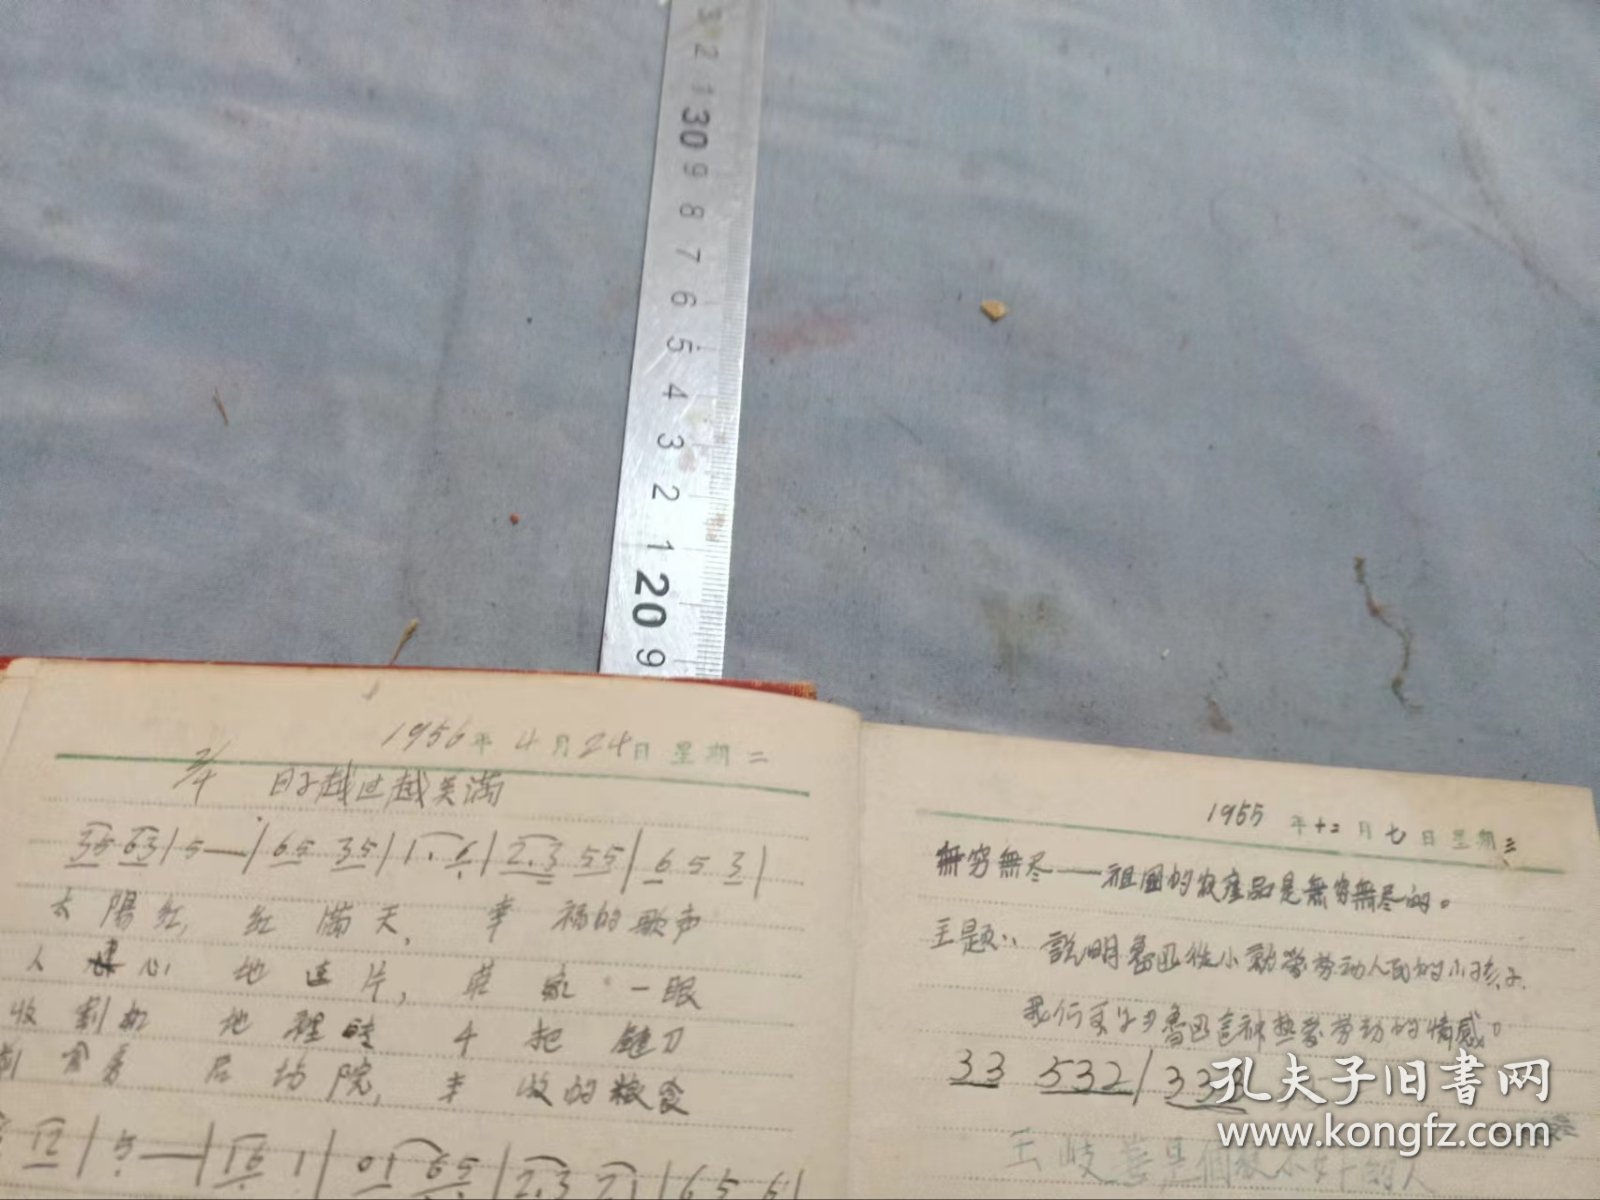 3
2
1
30
9
8
7
6
5
4
3
2
1
20
9
1956年 4月24日 星期二
2/4 日子越过越美滿
35 63 | 5 — | 65 35 | 1. 6 | 2.3 55 | 6 5 3 |
太陽红, 红滿天, 幸福的歌声
人 心 地連片, 莊家一眼
收割机 地裡 千把鐮刀
后 院, 丰收的粮食
12 | 5 — | 61 | 1 10 65 | 2.3 21 | 6 5 6 |
1955年十二月七日星期三
無穷無尽——祖國的农產品是無穷無尽的。
主題: 說明魯迅從小熱爱劳动人民的小孩子.
我们要学习魯迅这种热爱劳动的情感。
33 532 | 33
王岐善是個很不好的人
孔夫子旧书网
www.kongfz.com